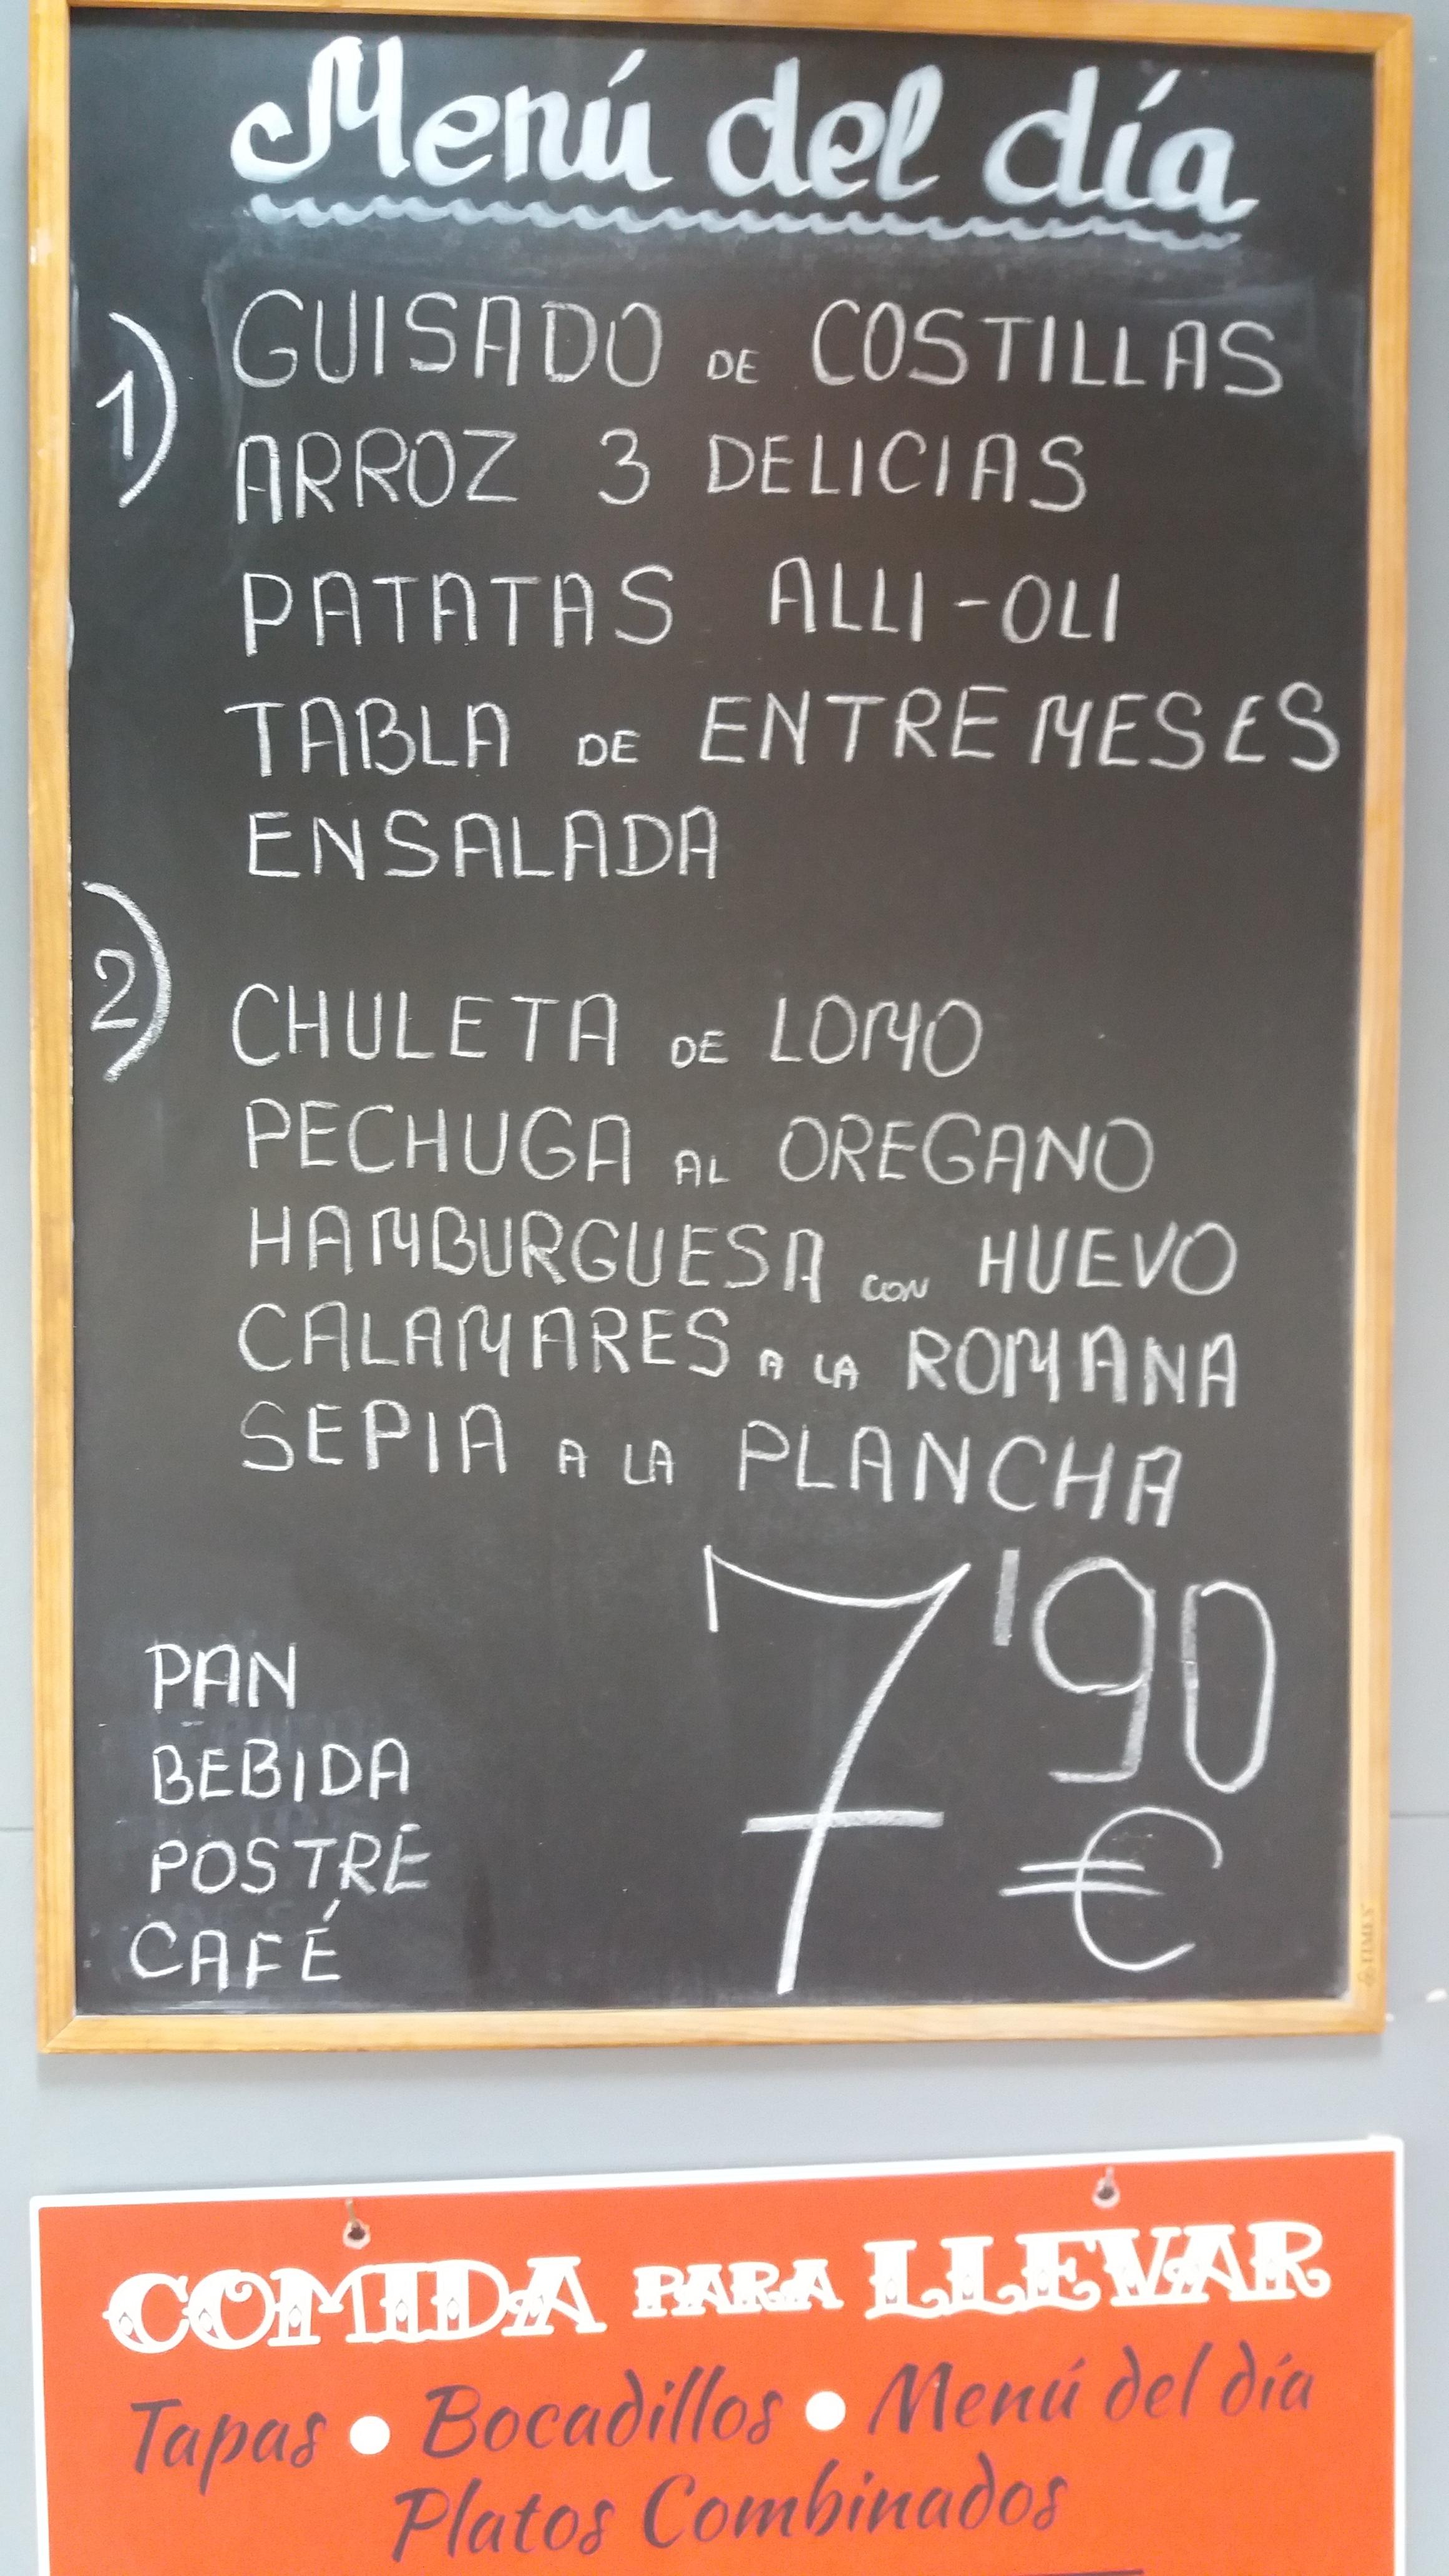 Menú del día
1) GUISADO DE COSTILLAS
ARROZ 3 DELICIAS
PATATAS ALLI-OLI
TABLA DE ENTREMESES
ENSALADA
2) CHULETA DE LOMO
PECHUGA AL OREGANO
HAMBURGUESA CON HUEVO
CALAMARES A LA ROMANA
SEPIA A LA PLANCHA
7'90 €
PAN
BEBIDA
POSTRE
CAFÉ
COMIDA PARA LLEVAR
Tapas • Bocadillos • Menú del día
Platos Combinados